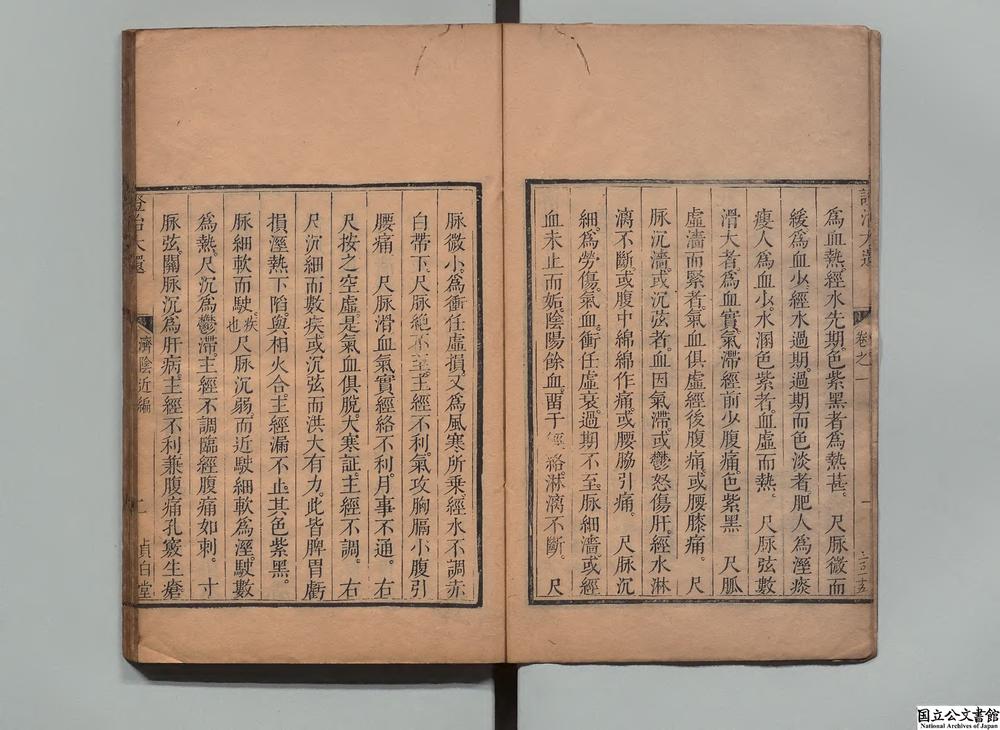 為血熱。經水先期。色紫黑者。為熱甚。　尺脉微而
緩。為血少。經水過期。過期而色淡者。肥人為溼痰
瘦人為血少。水溷色紫者。血虛而熱。　尺脉弦數
滑大者。為血實氣滯。經前少腹痛。色紫黑　尺脈
虛濇而緊者。氣血俱虛。經後腹痛。或腰膝痛。　尺
脉沉濇。或沉弦者。血因氣滯。或鬱怒傷肝。經水淋
漓不斷。或腹中綿綿作痛。或腰脇引痛。　尺脉沉
細。為勞傷氣血。衝任虛衰。過期不至。脉細濇。或經
血未止而妬。陰陽餘血。畱于經絡。淋漓不斷。　尺
脉微小。為衝任虛損。又為風寒所乗。經水不調。赤
白帶下。尺脉絶不至。主經不利。氣攻胸膈。小腹引
腰痛　尺脉滑。血氣實。經絡不利。月事不通。　右
尺按之空虛。是氣血俱脫。大寒証。主經不調。　右
尺沉細而數疾。或沉弦而洪大有力。此皆脾胃虧
損。溼熱下陷。與相火合。主經漏不止。其色紫黑。
脉細軟而駛。疾也尺脉沉弱。而近駛。細軟為溼。駛數
為熱。尺沉為鬱滯。主經不調。臨經腹痛如刺。　寸
脉弦。關脉沉。為肝病。主經不利。兼腹痛。孔竅生瘡
證治大還
卷之一
濟陰近編
二
貞白堂
国立公文書館
National Archives of Japan